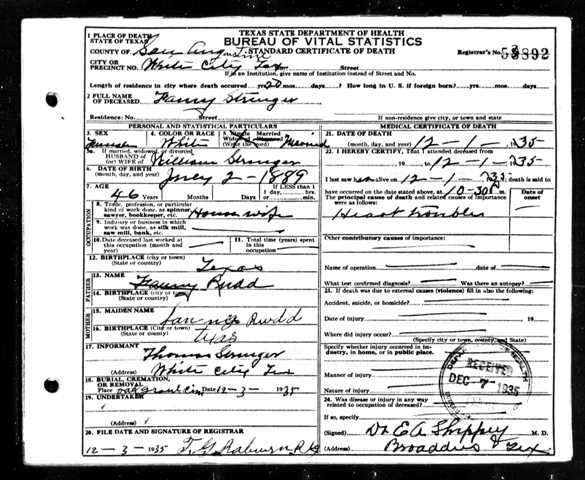 TEXAS STATE DEPARTMENT OF HEALTH
BUREAU OF VITAL STATISTICS
STANDARD CERTIFICATE OF DEATH
1 PLACE OF DEATH
STATE OF TEXAS
COUNTY OF San Augustine
Registrar's No.
53892
CITY OR
PRECINCT NO. White City Tex Street
If in an institution, give name of institution instead of Street and No.
Length of residence in city where death occurred yrs. 20 mos. days? How long in U. S. if foreign born? yrs. mos. days.
2 FULL NAME
OF DECEASED Fanny Stringer
Residence: No. Street If non-residence give city, or town and state
PERSONAL AND STATISTICAL PARTICULARS
3. SEX 4. COLOR OR RACE White
5. Single Married
Widowed
(Write the word) Married
5a. If married, widowed,
HUSBAND of
(or) WIFE of William Stringer
6. DATE OF BIRTH
(month, day, and year) 2-1889
7. AGE 46 Years Months Days If LESS than
1 day, hrs.
or min.
OCCUPATION
8. Trade, profession, or particular
kind of work done, as spinner,
sawyer, bookkeeper, etc. House wife
9. Industry or business in which
work was done, as silk mill,
saw mill, bank, etc.
10. Date deceased last worked at
this occupation (month and
year)
11. Total time (years) spent
in this occupation
12. BIRTHPLACE (City or town)
(State or county) Texas
FATHER
13. NAME Rudd
14. BIRTHPLACE (city or town)
(State or country)
MOTHER
15. MAIDEN NAME
16. BIRTHPLACE (City or town)
(State or country) Texas
17. INFORMANT Thomas Stringer
(Address) White City Tex
18. BURIAL, CREMATION,
OR REMOVAL
Place Date 12-3-1935
19. UNDERTAKER
(Address)
20. FILE DATE AND SIGNATURE OF REGISTRAR
12-3-1935
MEDICAL CERTIFICATE OF DEATH
21. DATE OF DEATH
(month, day, and year) 12 , 35
22. I HEREBY CERTIFY, That I attended deceased
from , 19 to 12-1-, 35
I last saw alive on 12-1- 35 death is said to
have occurred on the date stated above, at 10-30 m.
The principal cause of death and related causes of importance
were as follows: Date of
onset
Heart trouble
Other contributory causes of importance:
Name of operation date of
What test confirmed diagnosis? Was there an autopsy?
23. If death was due to external causes (violence) fill in also the following:
Accident, suicide, or homicide?
Date of injury 19
Where did injury occur?
(Specify city or town, county, and State)
Specify whether injury occurred in industry, in home, or in public place.
Manner of injury
Nature of injury
RECEIVED
DEC-7-1935
24. Was disease or injury in any way
related to occupation of deceased?
If so, specify
(Signed) Dr. E A Shippey M. D.
(Address) Broaddus Tex.